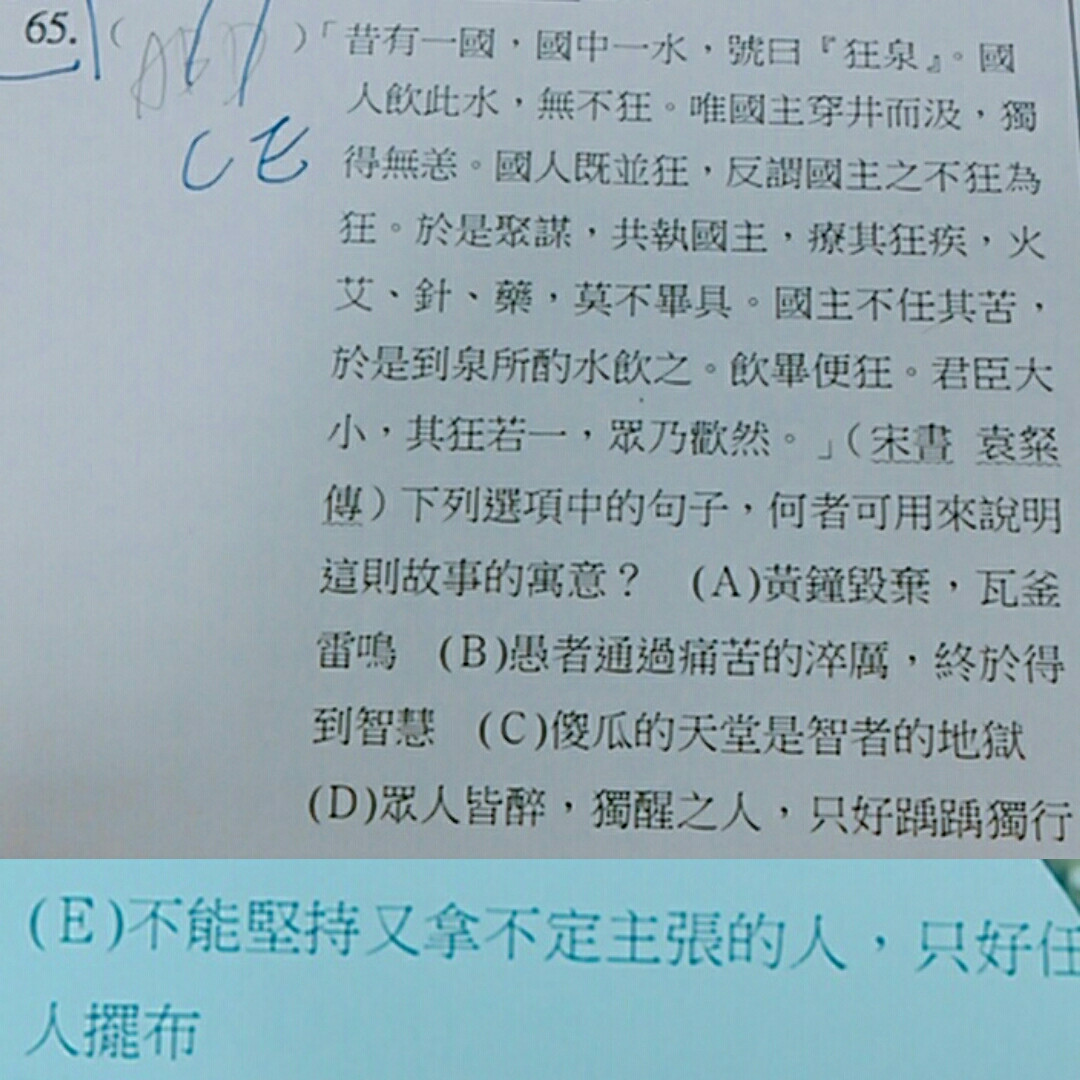 65. ( ABD )「昔有一國，國中一水，號曰『狂泉』。國
人飲此水，無不狂。唯國主穿井而汲，獨
CE
得無恙。國人既並狂，反謂國主之不狂為
狂。於是聚謀，共執國主，療其狂疾，火
艾、針、藥，莫不畢具。國主不任其苦，
於是到泉所酌水飲之。飲畢便狂。君臣大
小，其狂若一，眾乃歡然。」（宋書 袁粲
傳）下列選項中的句子，何者可用來說明
這則故事的寓意？ (A)黃鐘毀棄，瓦釜
雷鳴 (B)愚者通過痛苦的淬厲，終於得
到智慧 (C)傻瓜的天堂是智者的地獄
(D)眾人皆醉，獨醒之人，只好踽踽獨行
(E)不能堅持又拿不定主張的人，只好任
人擺布